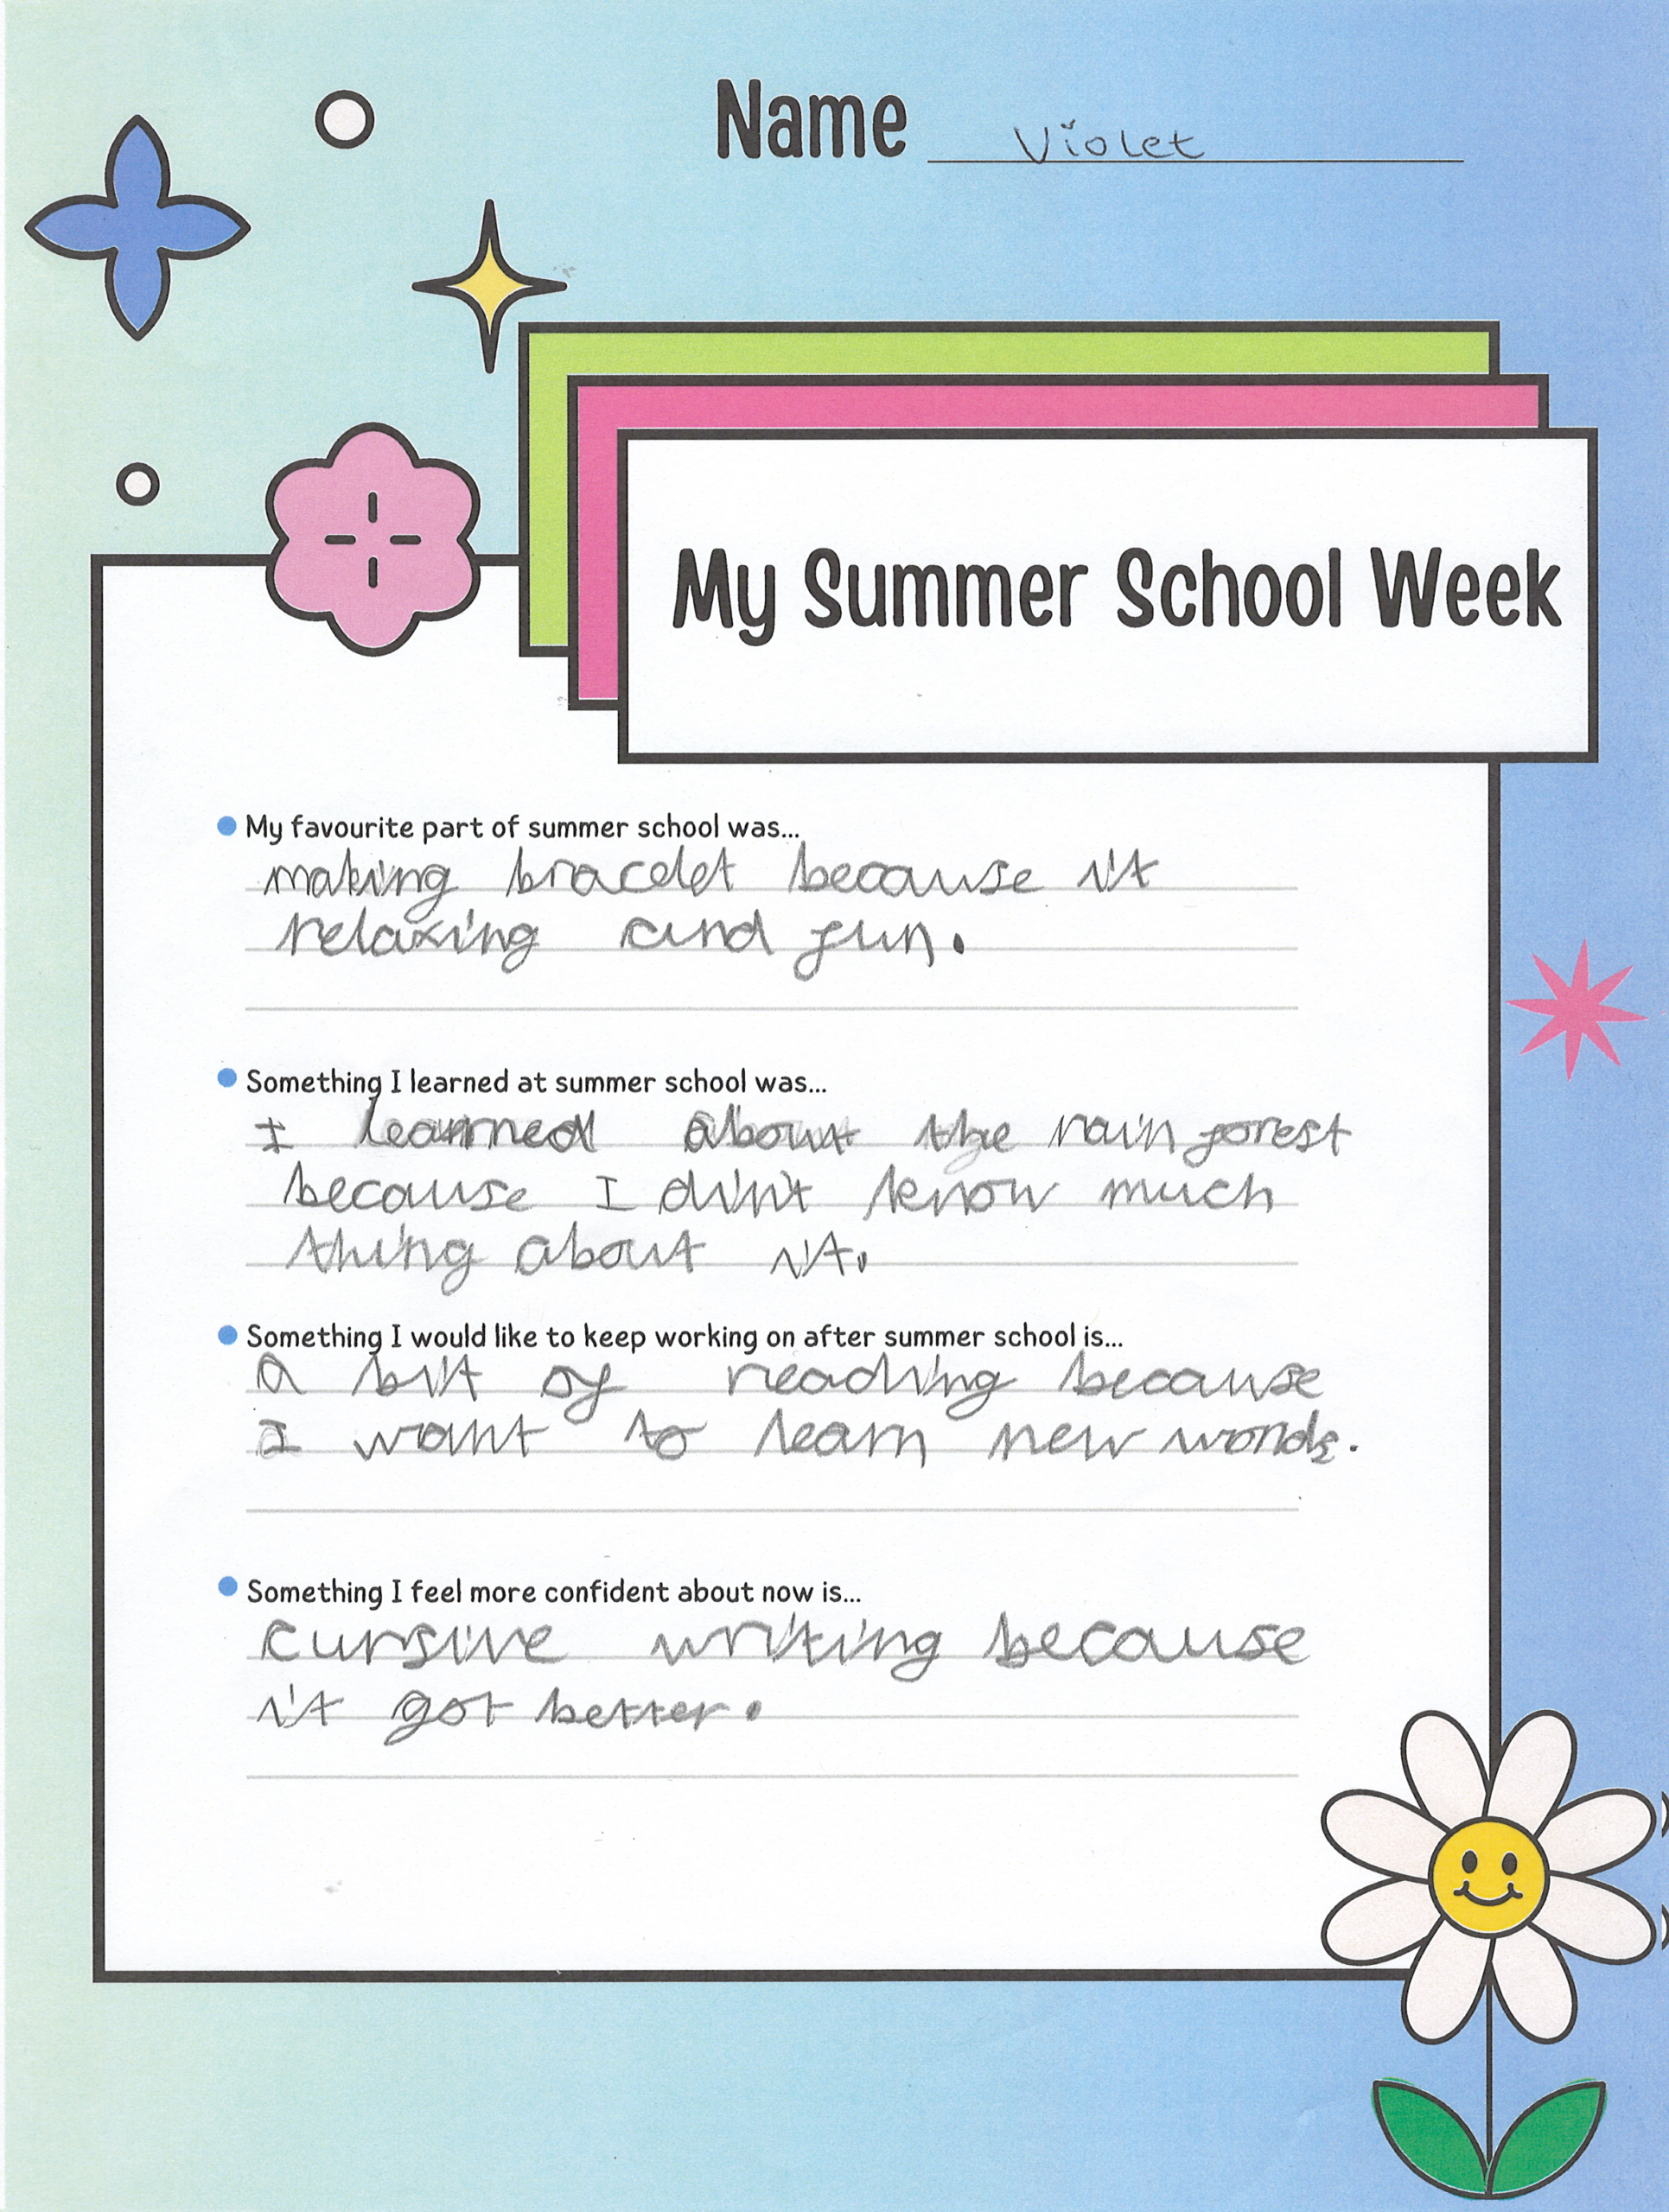 Name Violet
My Summer School Week
My favourite part of summer school was...
making bracelet because it
relaxing and fun.
Something I learned at summer school was...
I learned about the rainforest
because I din't know much
thing about it.
Something I would like to keep working on after summer school is...
a bit of reading because
I want to learn new words.
Something I feel more confident about now is...
cursive writing because
it got better.